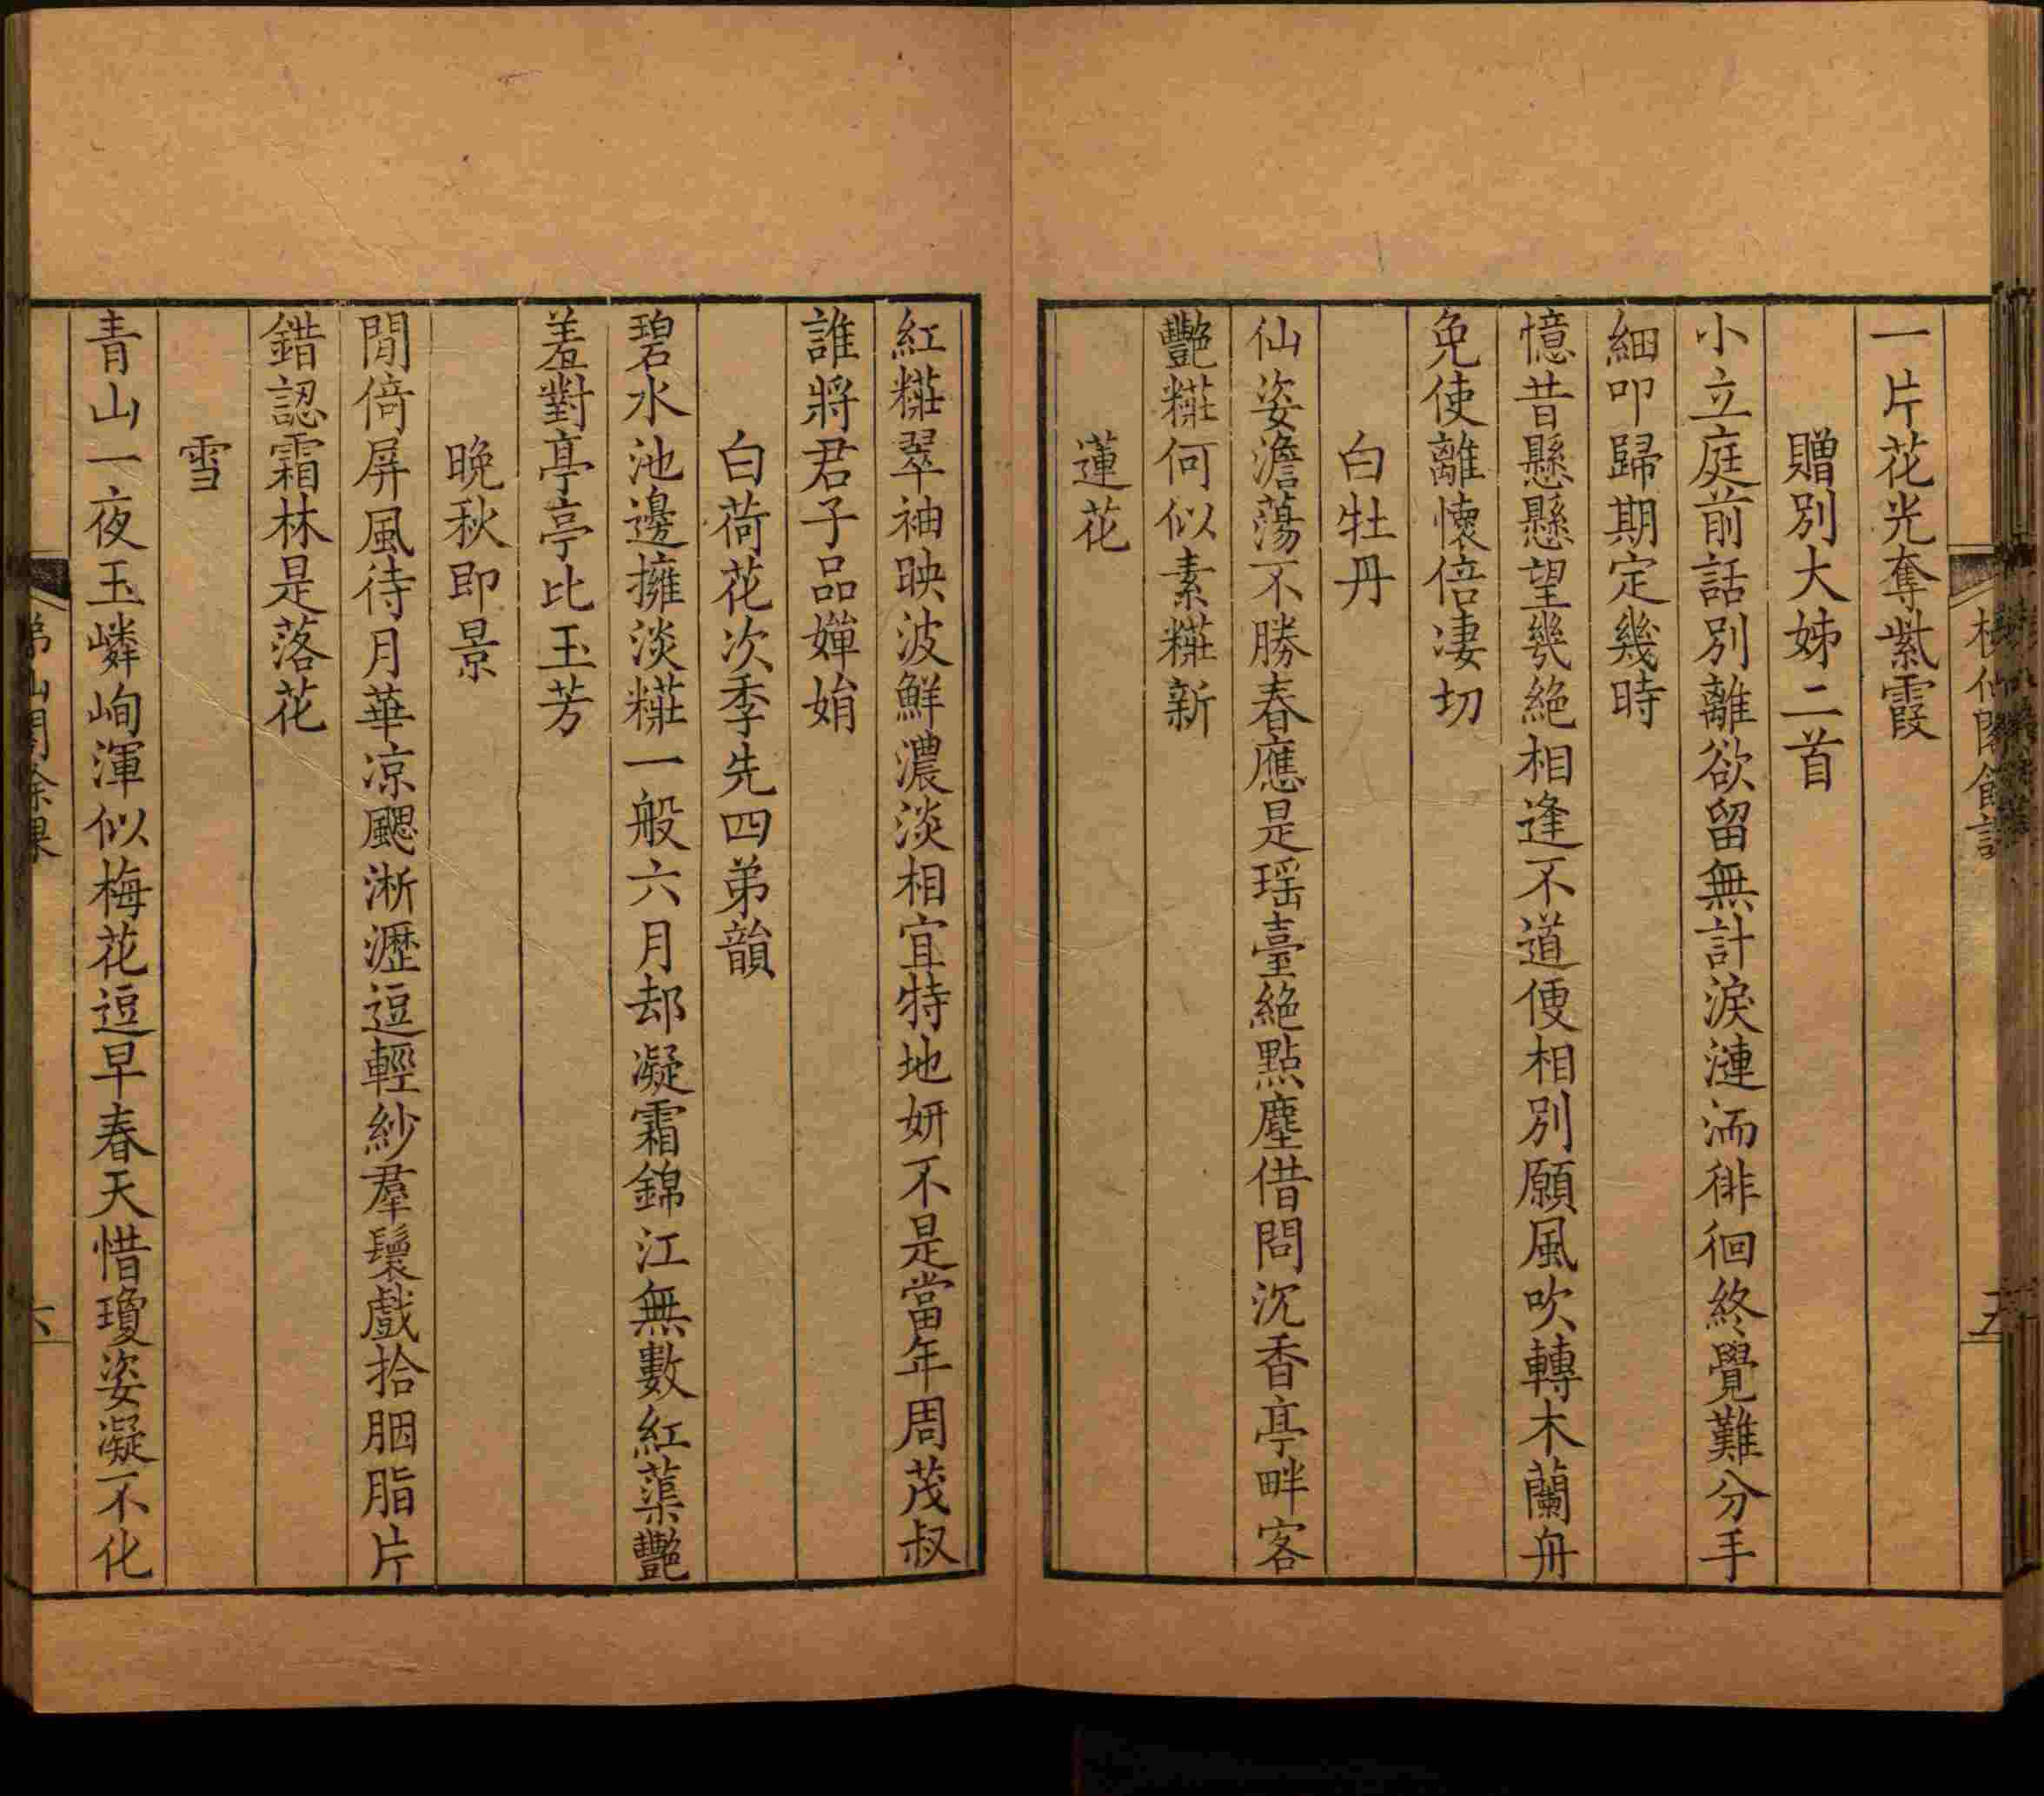 一片花光奪紫霞
贈別大姊二首
小立庭前話別離欲留無計淚漣洏徘徊終覺難分手
細叩歸期定幾時
憶昔懸懸望㡬絕相逢不道便相別願風吹轉木蘭舟
免使離懷倍凄切
白牡丹
仙姿澹蕩不勝春應是瑶臺絕點塵借問沉香亭畔客
艷糚何似素糚新
蓮花
紅糚翠袖映波鮮濃淡相宜特地妍不是當年周茂叔
誰將君子品嬋娟
白荷花次季先四弟韻
碧水池邊擁淡糚一般六月却凝霜錦江無數紅蕖艷
羞對亭亭比玉芳
晚秋即景
閒倚屏風待月華凉颸淅瀝逗輕紗羣鬟戲拾胭脂片
錯認霜林是落花
雪
青山一夜玉嶙峋渾似梅花逗早春天惜瓊姿凝不化
六